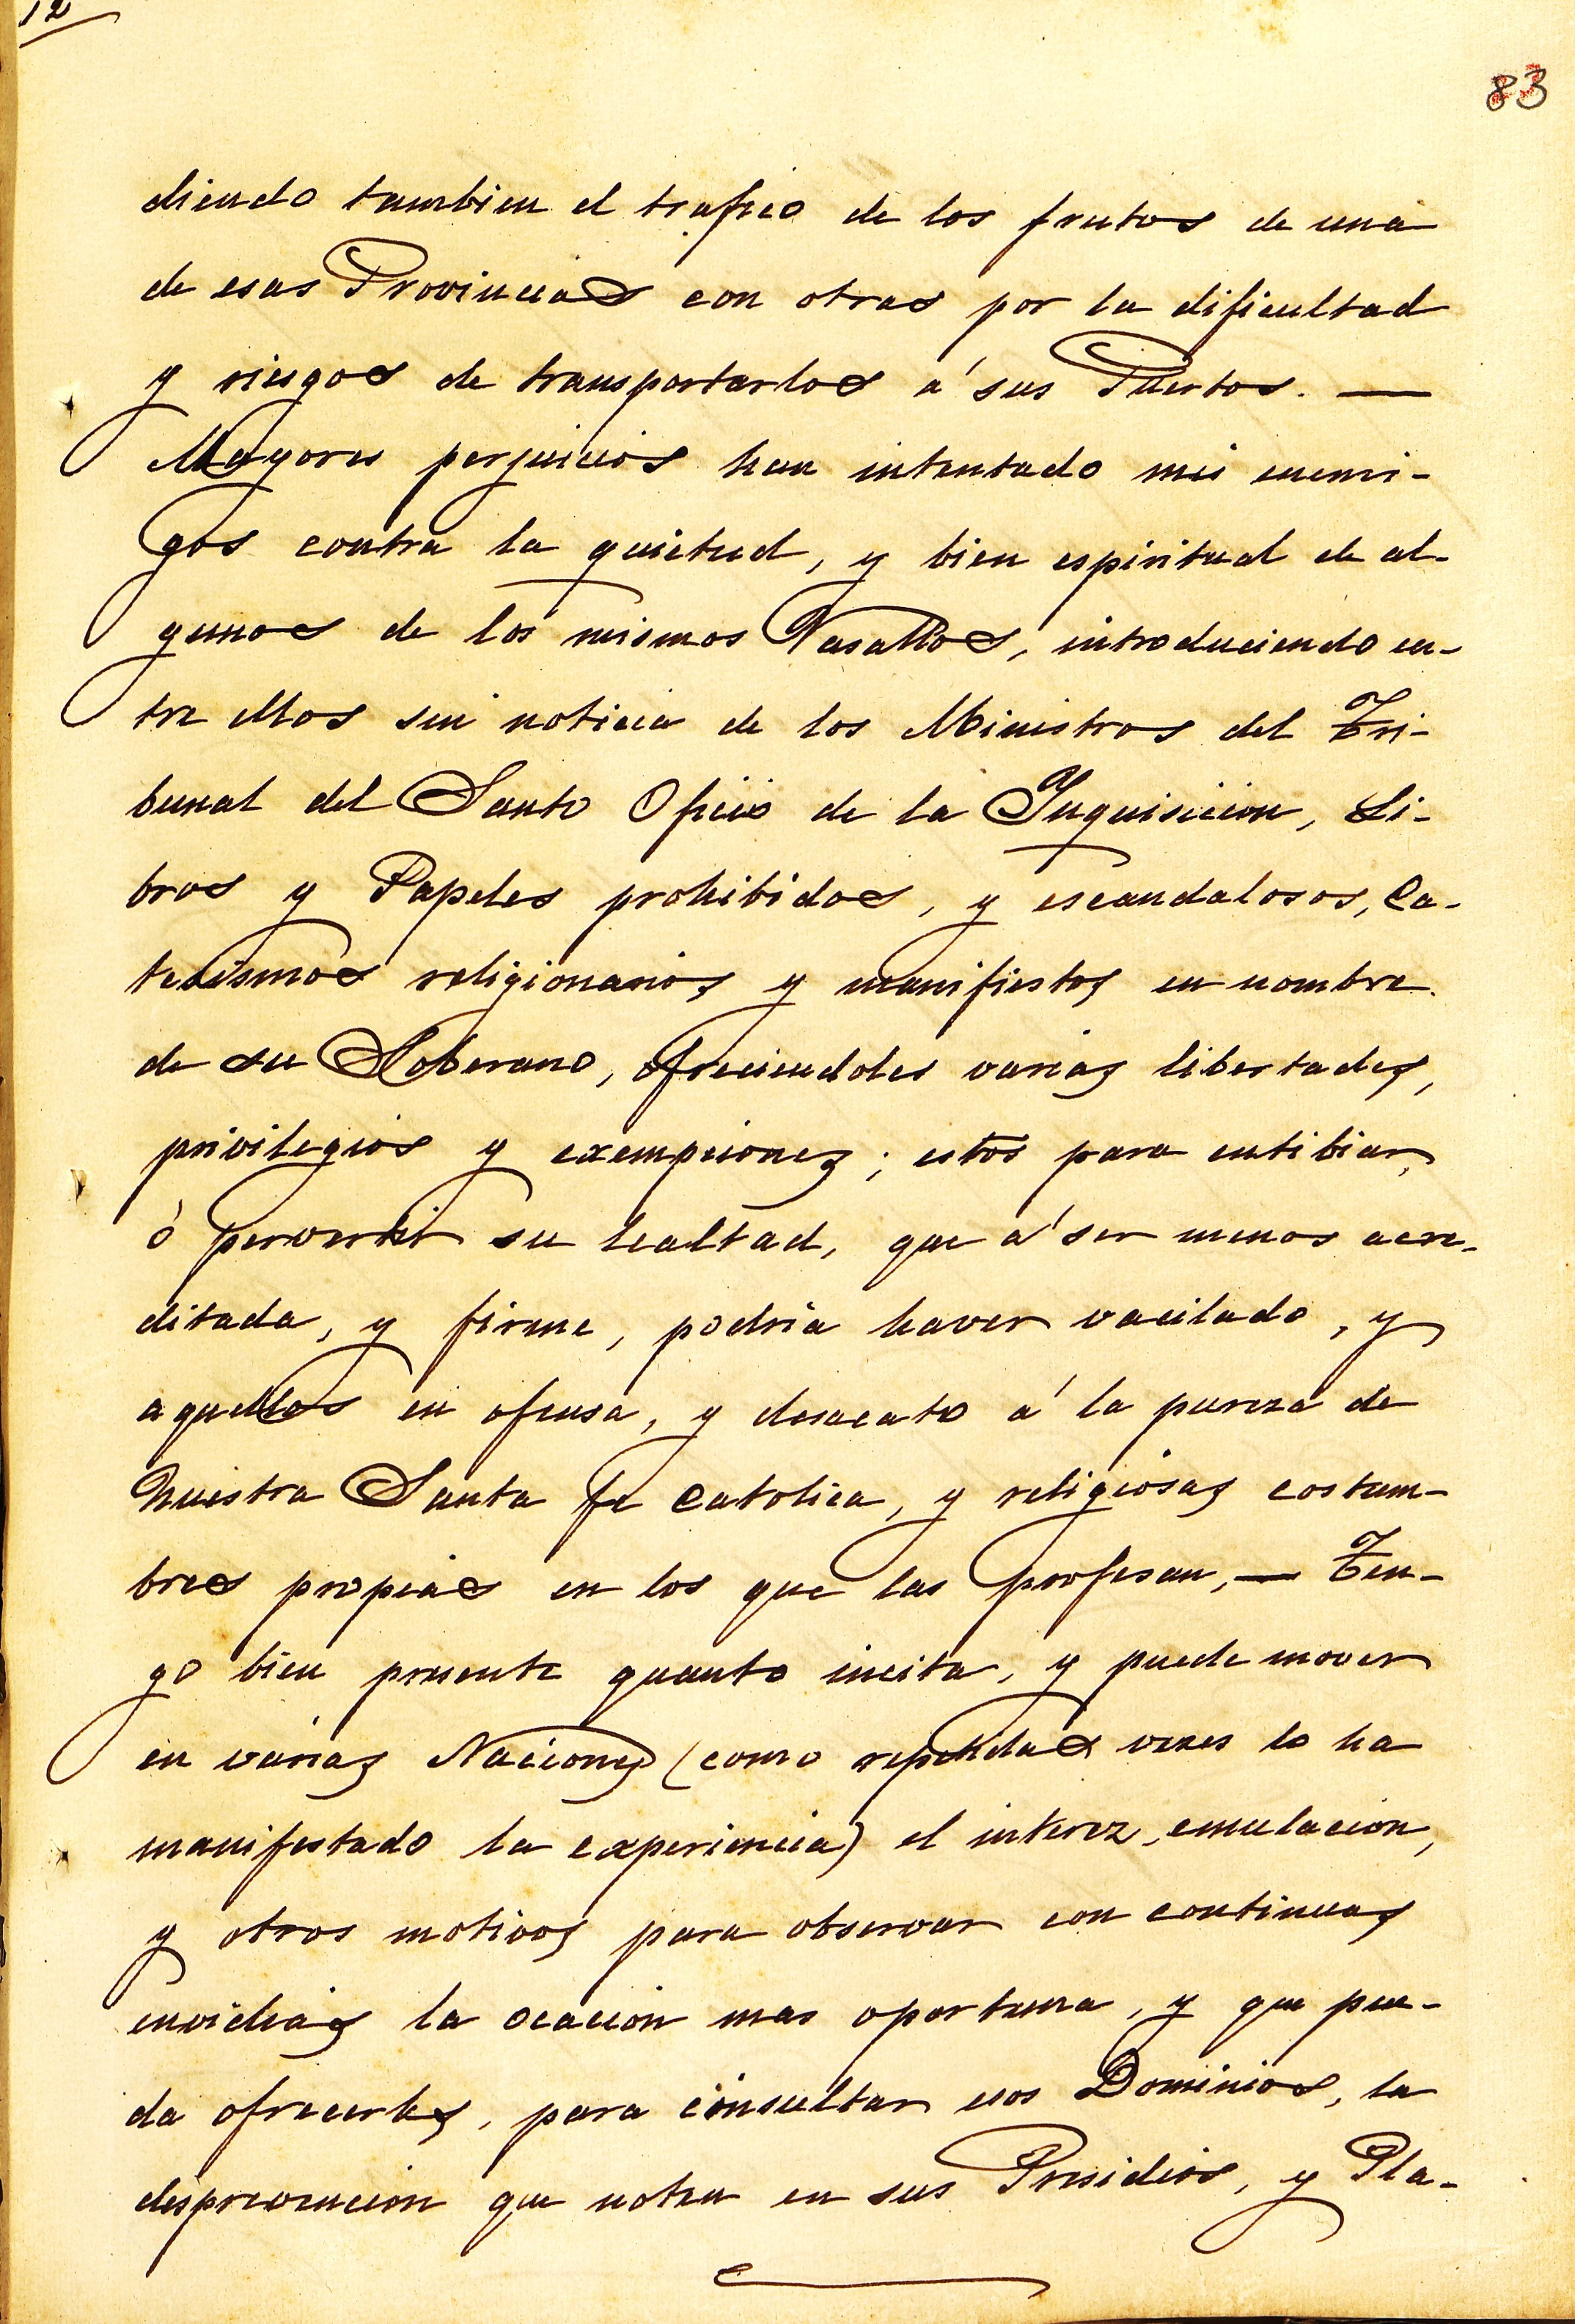 12
83
diendo tambien el trafico de los frutos de una
de esas Provincias con otras por la dificultad
y riesgos de transportarlos á sus Puertos. —
Mayores perjuicios han intentado mis enemi-
gos contra la quietud, y bien espiritual de al-
gunos de los mismos Vasallos, introduciendo en-
tre ellos sin noticia de los Ministros del Tri-
bunal del Santo Oficio de la Inquisicion, Li-
bros y Papeles prohibidos, y escandalosos, Ca-
tecismos religionarios y manifiestos en nombre
de su Soberano, ofreciendoles varias libertades,
privilegios y exempciones; estos para entibiar,
ó pervertir su lealtad, que á ser menos acre-
ditada, y firme, podria haver vacilado, y
aquellos en ofensa, y desacato á la pureza de
Nuestra Santa fe Catolica, y religiosas costum-
bres propias en los que las profesan, — Ten-
go bien presente quanto incita, y puede mover
en varias Naciones (como repetidas vezes lo ha
manifestado la experiencia) el interez, emulacion,
y otros motivos para observar con continuas
envidias la ocacion mas oportuna, y que pue-
da ofrecerles, para insultar esos Dominios, la
desprevencion que noten en sus Presidios, y Pla-